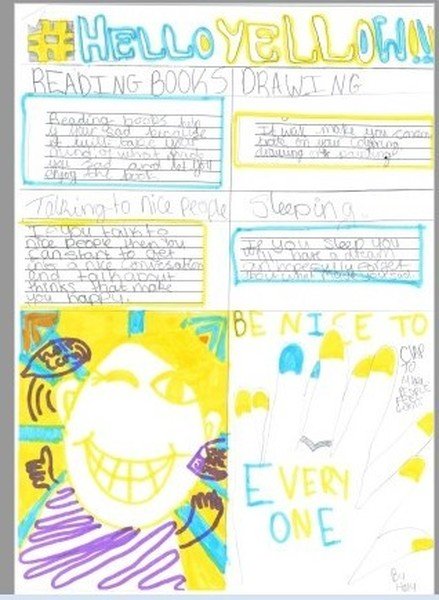 #HELLO YELLOW!!
READING BOOKS
Reading books help
if your sad because
it will take your
mind of what made
you sad and let you
enjoy the book.
DRAWING
It will make you
on your
drawing or painting
Talking to nice People
If you talk to
nice people then you
can start to get
into a nice conversation
and talk about
thinks that make
you happy.
Sleeping.
If you sleep you
will have a dream
and hopefully forget
about what made you sad.
BE NICE TO
EVERY
ONE
CLAP
TO
MAKE
PEOPLE
FEEL
By